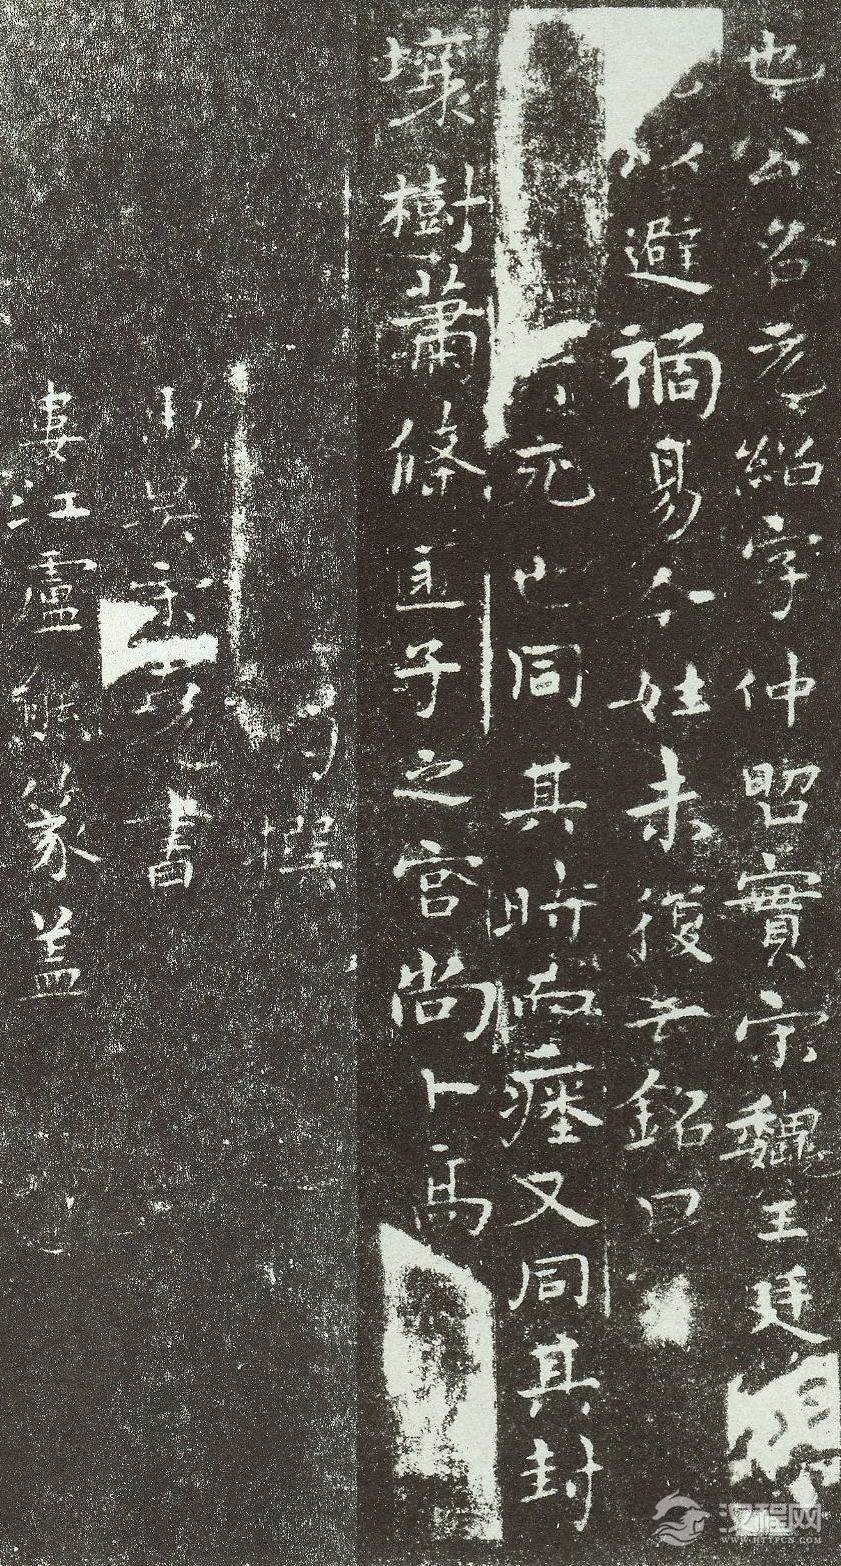 也公名元紹字仲昭實宗魏王廷
以避禍易今姓未復云銘曰
死也同其時而瘞又同其封
壤樹蕭條子之宮尚卜高
撰
吳宋克書
婁江盧熊篆蓋
汉程网
WWW.HTTPCN.COM